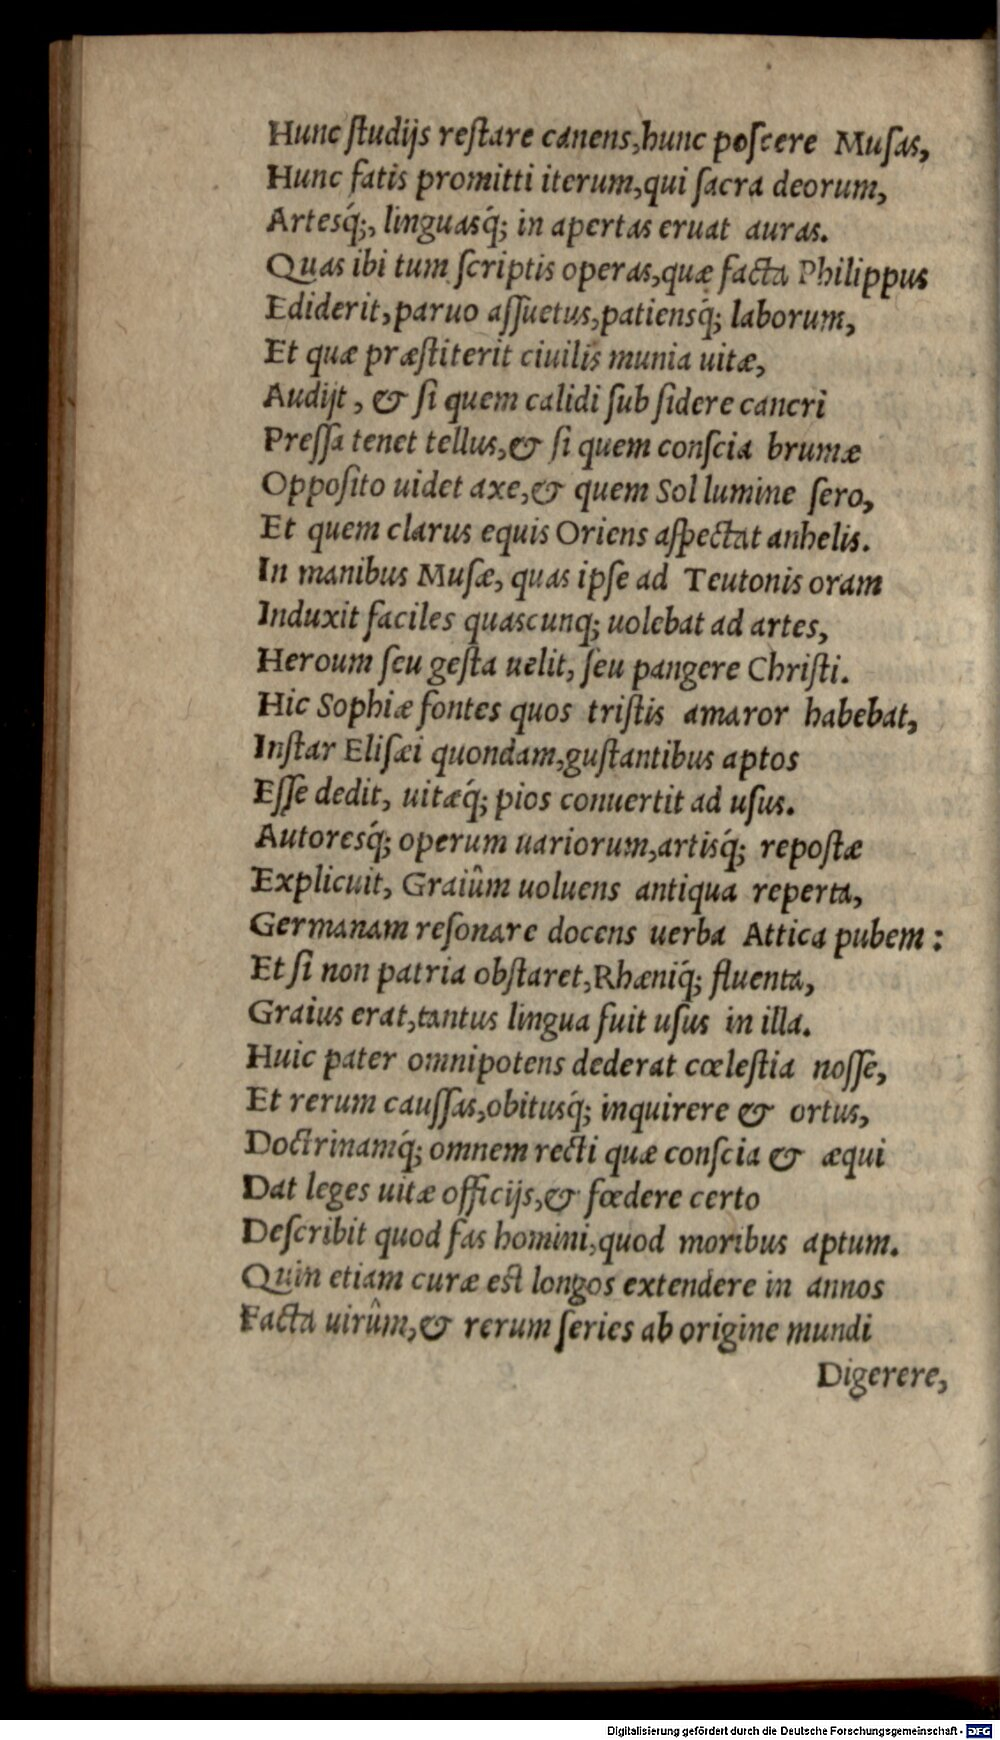 Hunc ſtudijs reſtare canens,hunc poſcere Muſas,
Hunc fatis promitti iterum,qui ſacra deorum,
Artesq́;, linguasq́; in apertas eruat auras.
Quas ibi tum ſcriptis operas,quæ facta Philippus
Ediderit,paruo aſſuetus,patiensq́; laborum,
Et quæ præſtiterit ciuilis munia uitæ,
Audijt , & ſi quem calidi ſub ſidere cancri
Preſſa tenet tellus,& ſi quem conſcia brumæ
Oppoſito uidet axe,& quem Sol lumine ſero,
Et quem clarus equis Oriens aſpectat anhelis.
In manibus Muſæ, quas ipſe ad Teutonis oram
Induxit faciles quascunq; uolebat ad artes,
Heroum ſeu geſta uelit, ſeu pangere Chriſti.
Hic Sophiæ fontes quos triſtis amaror habebat,
Inſtar Eliſæi quondam,guſtantibus aptos
Eſſe dedit, uitæq́; pios conuertit ad uſus.
Autoresq́; operum uariorum,artisq́; repoſtæ
Explicuit, Graiûm uoluens antiqua reperta,
Germanam reſonare docens uerba Attica pubem :
Et ſi non patria obſtaret,Rhæniq́; fluenta,
Graius erat,tantus lingua fuit uſus in illa.
Huic pater omnipotens dederat cœleſtia noſſe,
Et rerum cauſſas,obitusq́; inquirere & ortus,
Doctrinamq́; omnem recti quæ conſcia & æqui
Dat leges uitæ officijs,& fœdere certo
Deſcribit quod fas homini,quod moribus aptum.
Quin etiam curæ eſt longos extendere in annos
Facta uirûm,& rerum ſeries ab origine mundi
Digerere,
Digitalisierung gefördert durch die Deutsche Forschungsgemeinschaft - DFG